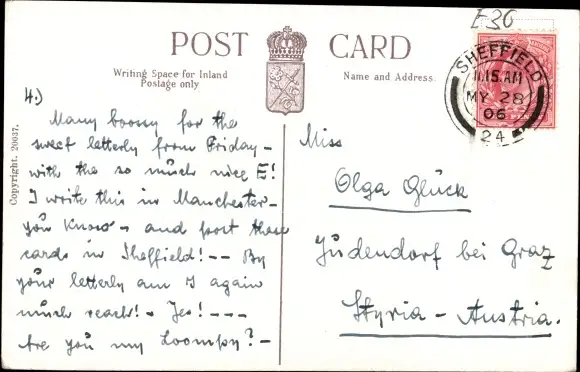 E36
POST CARD
Writing Space for Inland
Postage only
Name and Address
SHEFFIELD
11.15.AM
MY 28
06
24
Copyright. 20037.
4.)
Many boossy for the
sweet letterly from Friday –
with the so much nice E!
I write this in Manchester –
you know – and post those
cards in Sheffield! –– By
your letterly am I again
much reach! – Yes! –––
Are you my Loompy? –
Miss
Olga Glück
Judendorf bei Graz
Styria – Austria.